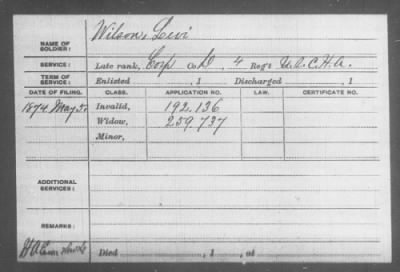 Wilson, Levi
NAME OF
SOLDIER:
SERVICE: Late rank, Corp Co. D, 4 Reg't U.S.C.H.A.
TERM OF
SERVICE: Enlisted , 1 Discharged , 1
DATE OF FILING. CLASS. APPLICATION NO. LAW. CERTIFICATE NO.
1874 May 5 Invalid, 192.136
Widow, 259.737
Minor,
ADDITIONAL
SERVICES:
REMARKS:
Died , 1 , at